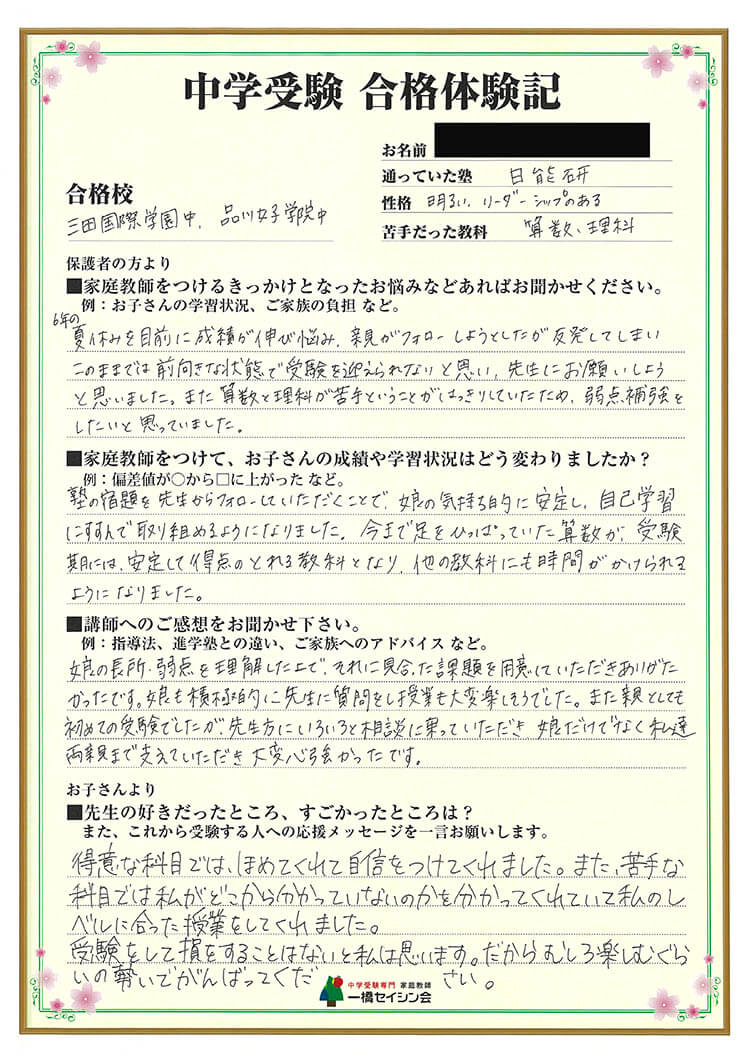 中学受験 合格体験記
お名前
通っていた塾 日能研
合格校
性格 明るい、リーダーシップのある
三田国際学園中、品川女子学院中
苦手だった教科 算数、理科
保護者の方より
■家庭教師をつけるきっかけとなったお悩みなどあればお聞かせください。
例：お子さんの学習状況、ご家族の負担 など。
6年の
夏休みを目前に成績が伸び悩み、親がフォローしようとしたが反発してしまい
このままでは前向きな状態で受験を迎えられないと思い、先生にお願いしよう
と思いました。また算数と理科が苦手ということがはっきりしていたため、弱点補強を
したいと思っていました。
■家庭教師をつけて、お子さんの成績や学習状況はどう変わりましたか？
例：偏差値が○から□に上がった など。
塾の宿題を先生からフォローしていただくことで、娘の気持ち的に安定し、自己学習
にすすんで取り組めるようになりました。今まで足をひっぱっていた算数が、受験
期には、安定して得点のとれる教科となり、他の教科にも時間がかけられる
ようになりました。
■講師へのご感想をお聞かせ下さい。
例：指導法、進学塾との違い、ご家族へのアドバイス など。
娘の長所・弱点を理解した上で、それに見合った課題を用意していただきありがた
かったです。娘も積極的に先生に質問をし授業も大変楽しそうでした。また親としても
初めての受験でしたが、先生方にいろいろと相談に乗っていただき 娘だけでなく私達
両親まで支えていただき大変心強かったです。
お子さんより
■先生の好きだったところ、すごかったところは？
また、これから受験する人への応援メッセージを一言お願いします。
得意な科目では、ほめてくれて自信をつけてくれました。また、苦手な
科目では私がどこから分かっていないのかを分かってくれていて私のレ
ベルに合った授業をしてくれました。
受験をして損をすることはないと私は思います。だからむしろ楽しむぐら
いの勢いでがんばってください。
中学受験専門 家庭教師
一橋セイシン会